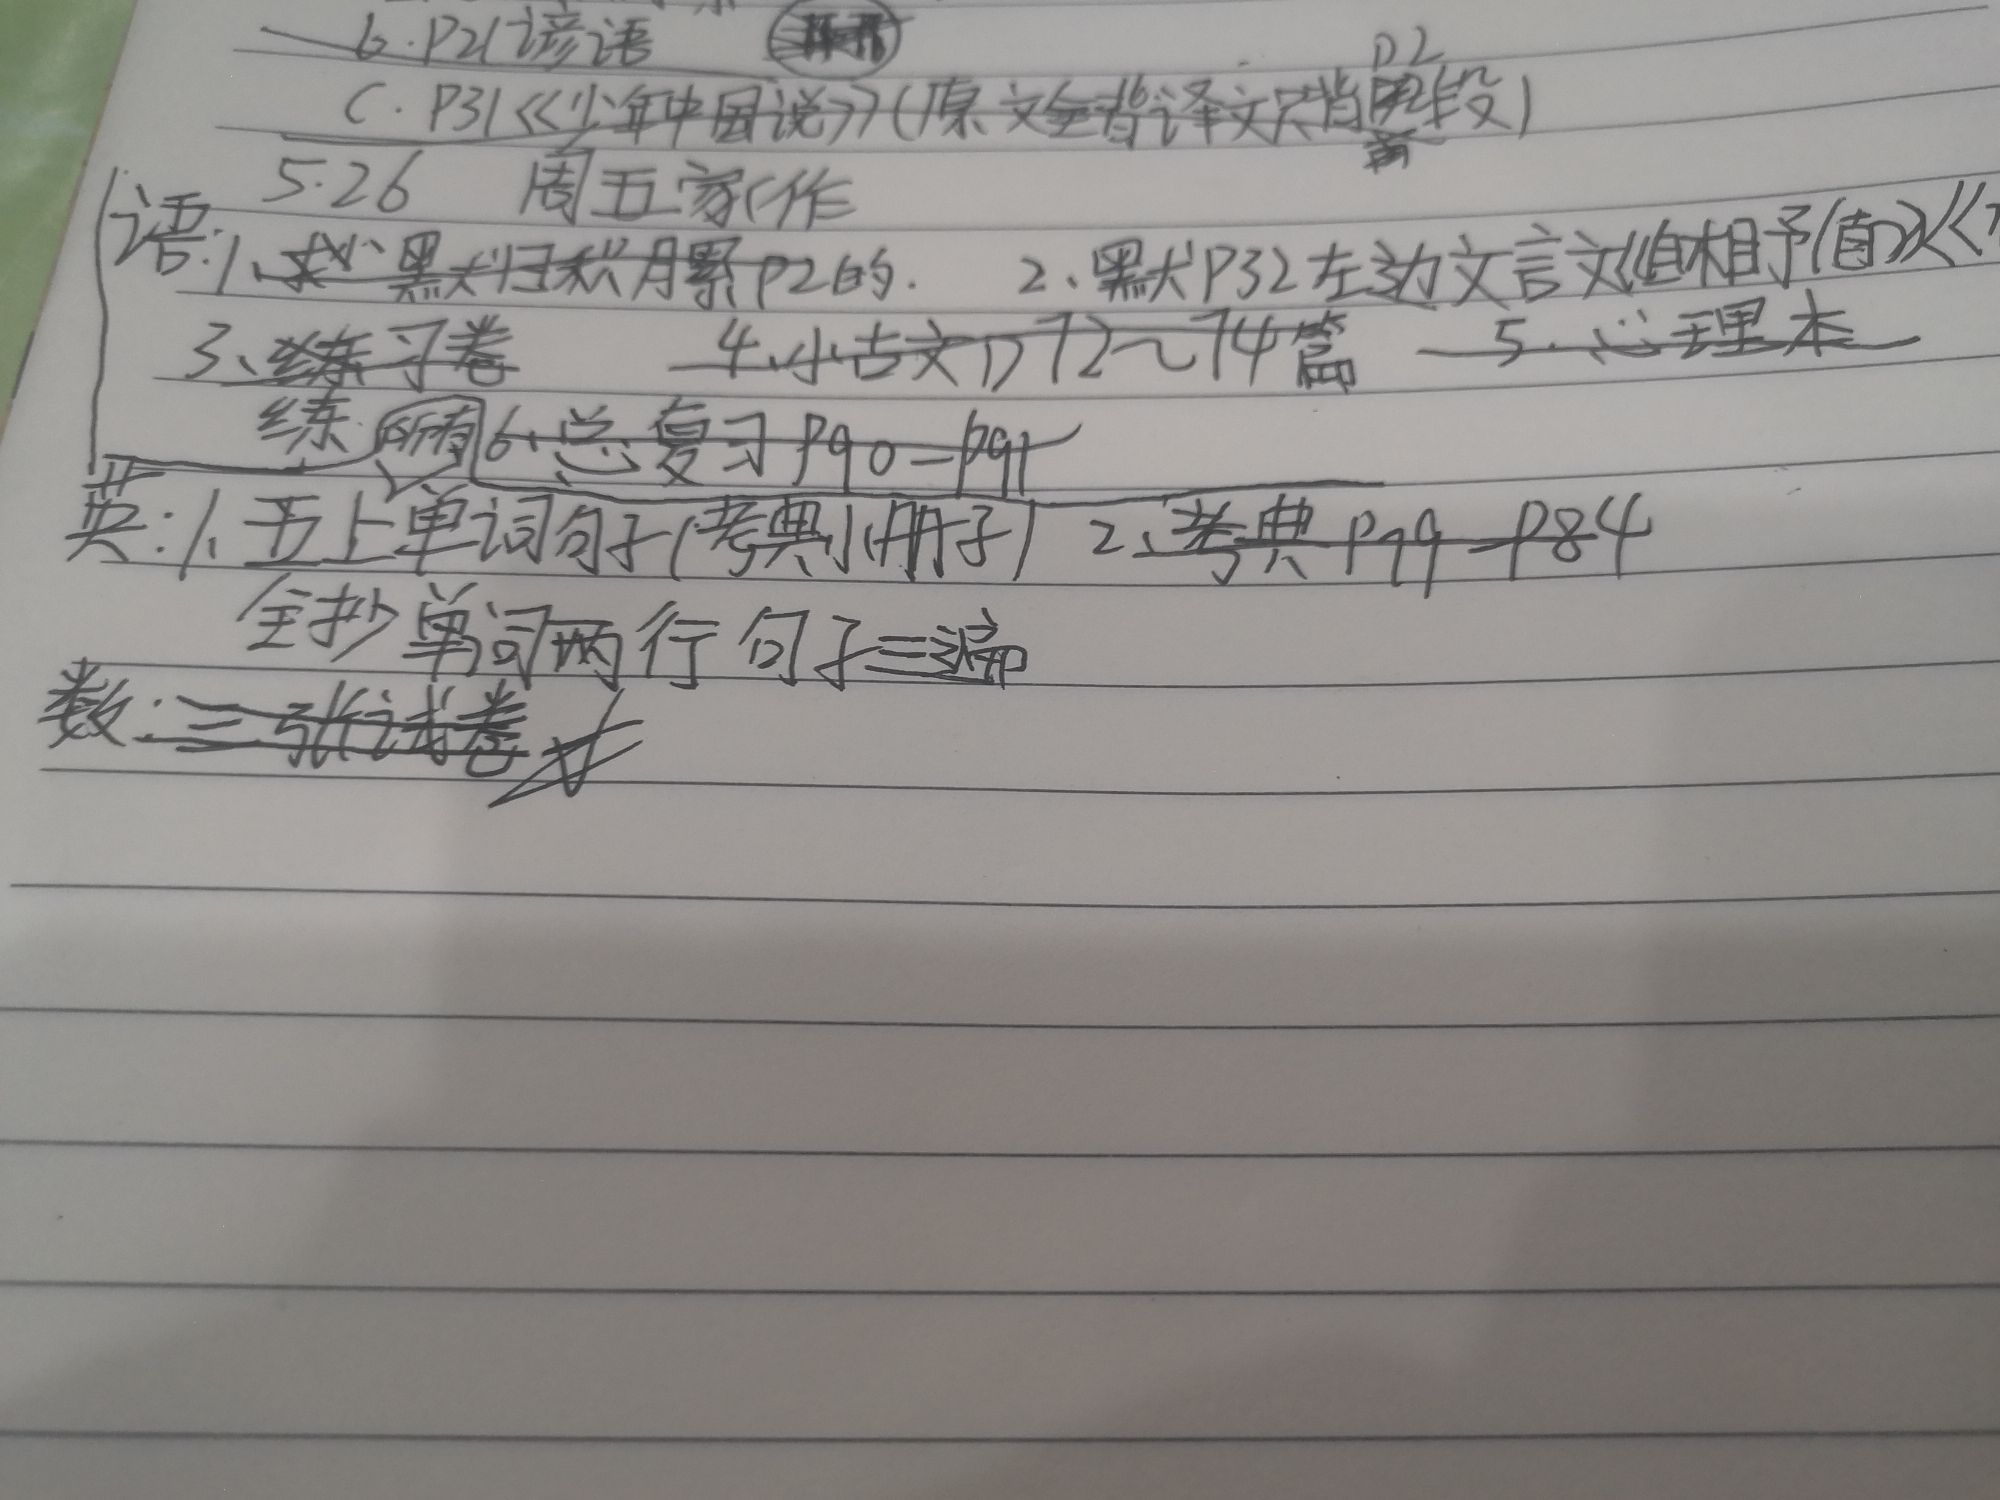 b.P21谚语
P2
C.P31《少年中国说》(原文全背译文只背段)
5.26 周五家作
语:1、默归积月累P2的. 2、默P32左边文言文《自相矛(盾)》《
3、练习卷 4、小古文P72~74篇 5.心理本
练 所有 6、总复习P90-P91
英:1、五上单词句子(考典小册子) 2、考典P79-P84
全抄单词两行句子三遍
数:三张试卷